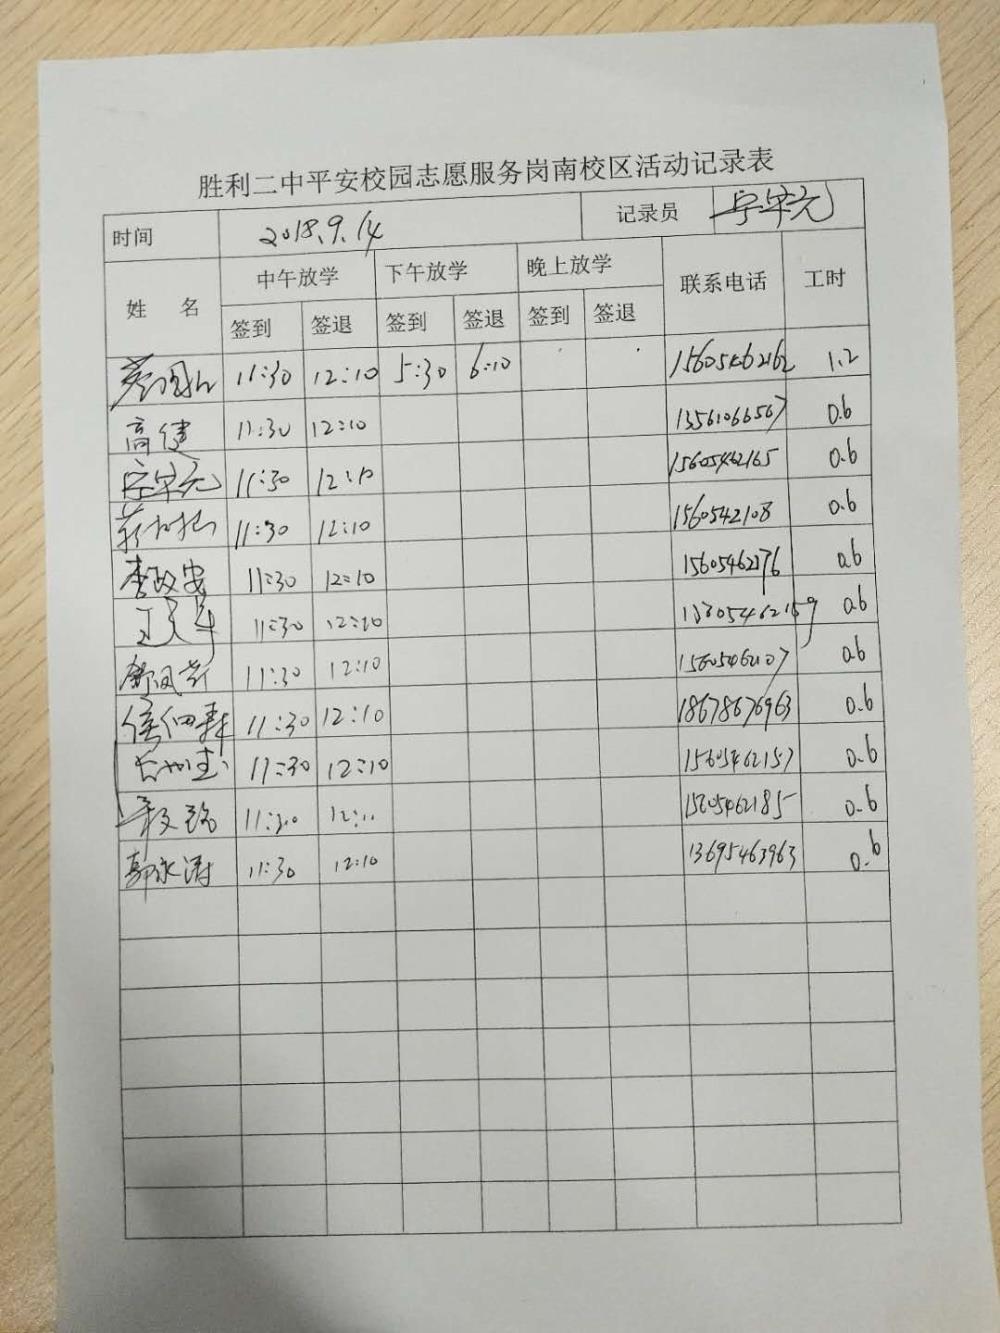 胜利二中平安校园志愿服务岗南校区活动记录表
时间 2018.9.14 记录员
姓 名 中午放学 下午放学 晚上放学 联系电话 工时
签到 签退 签到 签退 签到 签退
11:30 12:10 5:30 6:10 15605462162 1.2
高健 11:30 12:10 13561066567 0.6
11:30 12:10 15605462165 0.6
11:30 12:10 1560542108 0.6
李政安 11:30 12:10 15605462176 0.6
11:30 12:10 0.6
11:30 12:10 15605462107 0.6
11:30 12:10 18678676963 0.6
11:30 12:10 15605462157 0.6
11:30 15605462185 0.6
郭永涛 11:30 12:10 13695463963 0.6